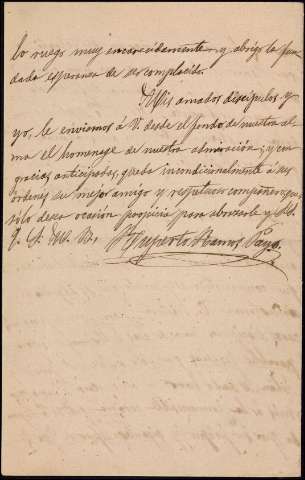 lo ruego muy encarecidamente, y abrigo la fun-
dada esperanza de ser complacido.
Mis amados discípulos y
yo, le enviamos á V. desde el fondo de nuestra al-
ma el homenaje de nuestra admiración; y con
gracias anticipadas, queda incondicionalmente á sus
órdenes su mejor amigo y respetuoso compañero, que
sólo desea ocasión propicia para abrazarle y
Ruperto Ramos Payo